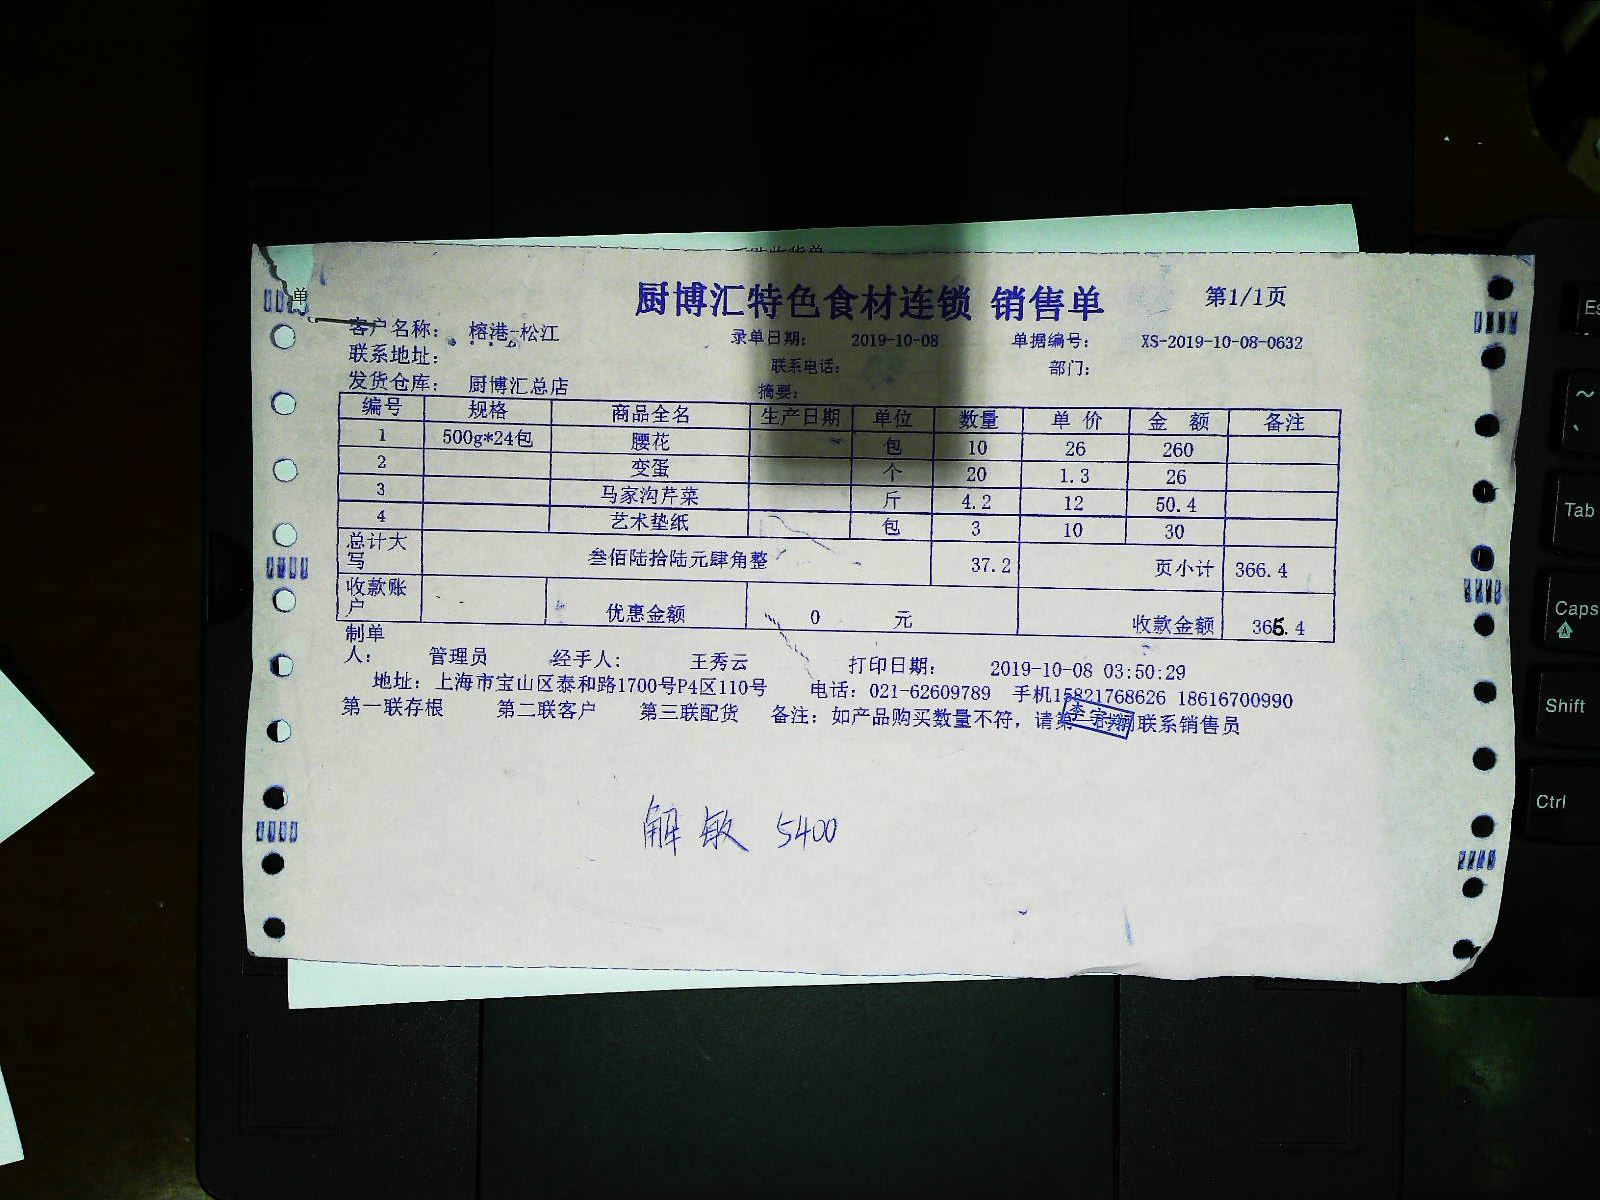 厨博汇特色食材连锁 销售单 第1/1页
单
客户名称: 榕港-松江 录单日期: 2019-10-08 单据编号: XS-2019-10-08-0632
联系地址: 联系电话: 部门:
发货仓库: 厨博汇总店 摘要:
编号 规格 商品全名 生产日期 单位 数量 单 价 金 额 备注
1 500g*24包 腰花 包 10 26 260
2 变蛋 个 20 1.3 26
3 马家沟芹菜 斤 4.2 12 50.4
4 艺术垫纸 包 3 10 30
总计大写 叁佰陆拾陆元肆角整 37.2 页小计 366.4
收款账户 优惠金额 0 元 收款金额 365.4
制单人: 管理员 经手人: 王秀云 打印日期: 2019-10-08 03:50:29
地址: 上海市宝山区泰和路1700号P4区110号 电话: 021-62609789 手机15821768626 18616700990
第一联存根 第二联客户 第三联配货 备注: 如产品购买数量不符, 请第一时间联系销售员
解敏 5400
Tab
Caps
Shift
Ctrl